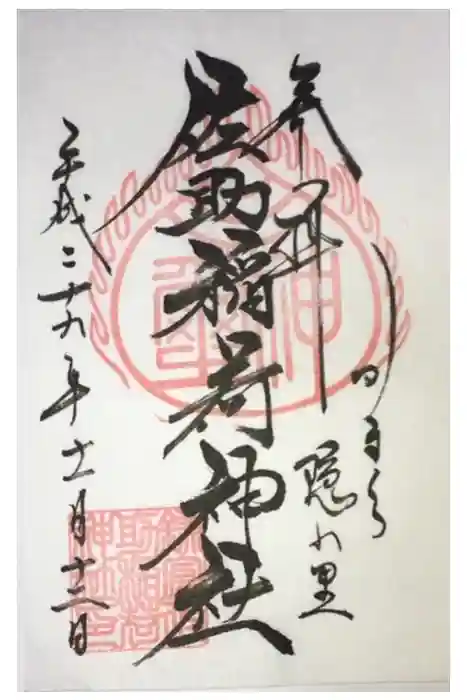 奉拝
かまくら
隠れ里
佐助稲荷神社
平成二十九年十一月十三日